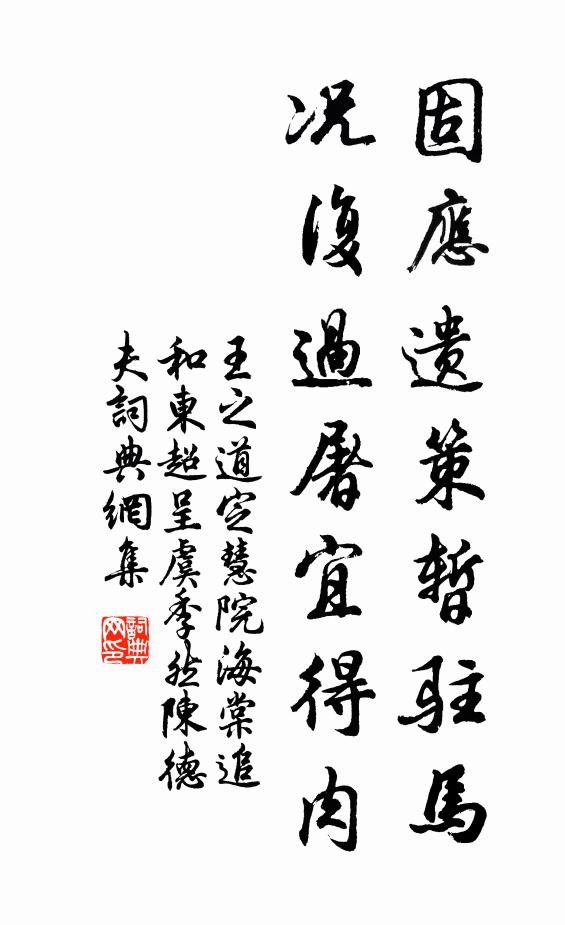 固應遺策暫駐馬
况復過屠宜得肉
王之道定慧院海棠追
和東超呈虞季然陳德
夫詞典網集
詞典
网印